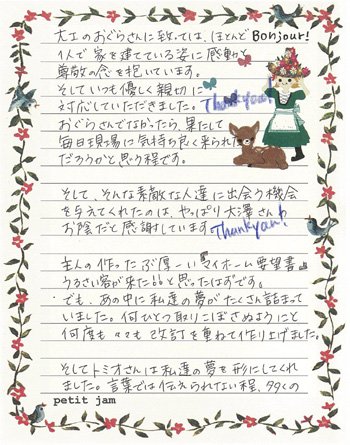 大工のおぐらさんに致っては、ほとんど Bonjour!
1人で家を建てている姿に感動と
尊敬の念を抱いています。
そしていつも優しく親切に
対応していただきました。Thankyou!
おぐらさんでなかったら、果たして
毎日現場に気持ち良く来られた
だろうかと思う程です。
そして、そんな素敵な人達に出会う機会
を与えてくれたのは、やっぱり大澤さん
お陰だと感謝しています Thankyou!
主人の作ったぶ厚ーいマイホーム要望書
うるさい客が来たぁぁと思ったはずです。
でも、あの中に私達の夢がたくさん詰まって
いました。何ひとつ取りこぼさぬようにと
何度も々々も改訂を重ねて作り上げました。
そしてトミオさんは私達の夢を形にしてくれ
ました。言葉では伝えられない程、多くの
petit jam